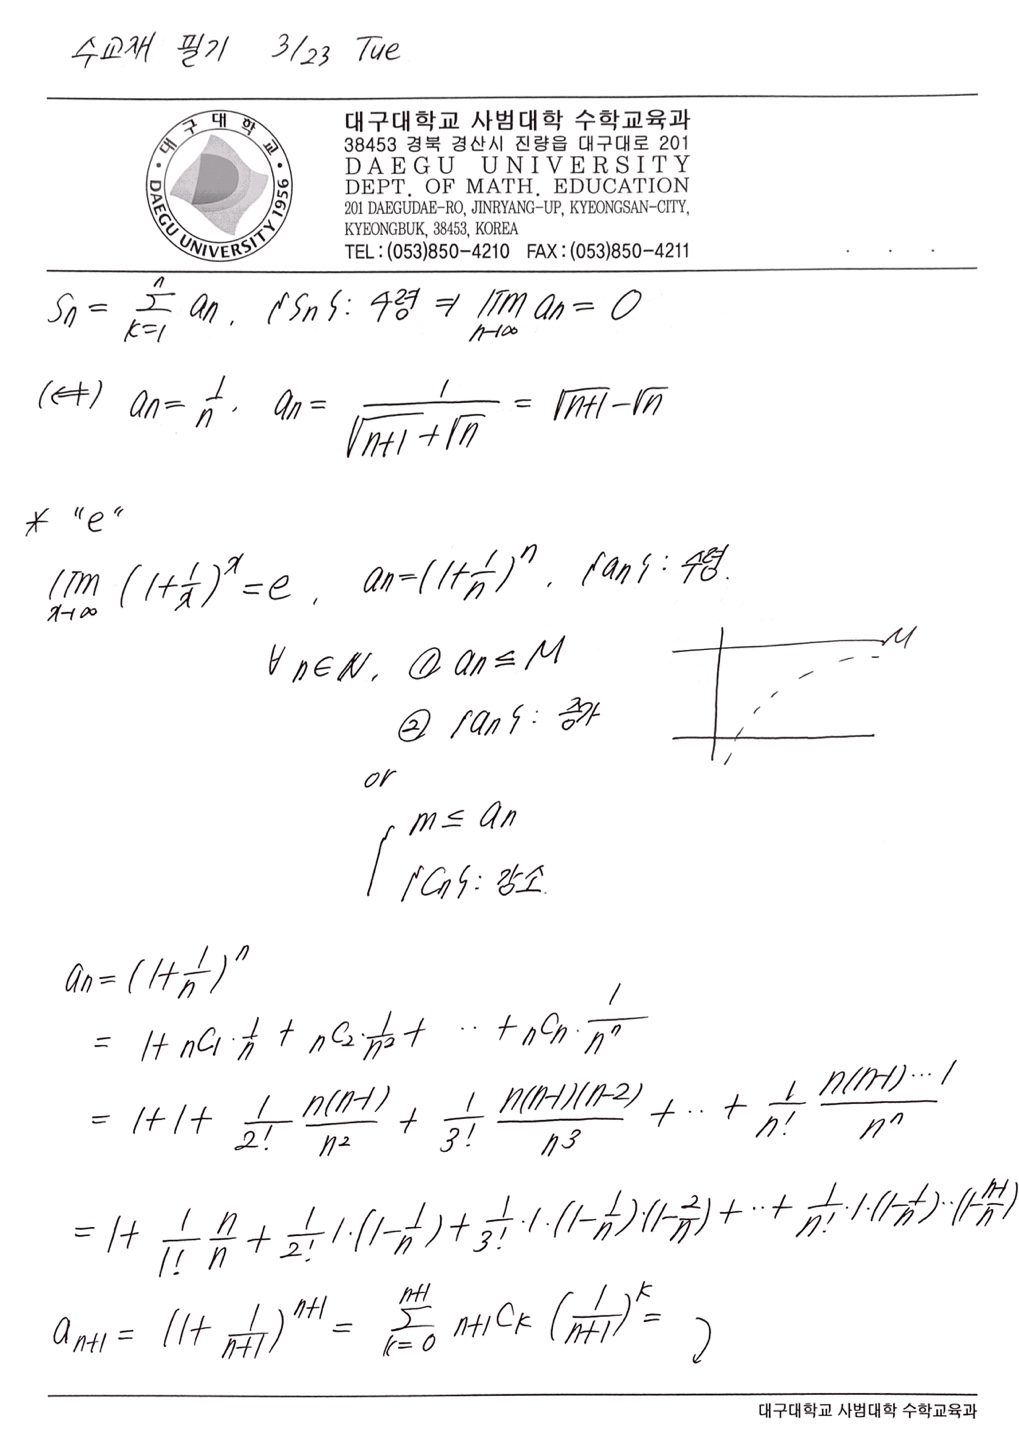 수교재 필기 3/23 Tue
대구대학교
DAEGU UNIVERSITY 1956
대구대학교 사범대학 수학교육과
38453 경북 경산시 진량읍 대구대로 201
DAEGU UNIVERSITY
DEPT. OF MATH. EDUCATION
201 DAEGUDAE-RO, JINRYANG-UP, KYEONGSAN-CITY,
KYEONGBUK, 38453, KOREA
TEL:(053)850-4210 FAX:(053)850-4211
. . .
Sₙ = Σ_{k=1}^{n} aₙ. {Sₙ}: 수렴 ⇒ lim_{n→∞} aₙ = 0
(⇍) aₙ = 1/n. aₙ = 1/(√(n+1) + √n) = √(n+1) - √n
* "e"
lim_{x→∞} (1+1/x)^x = e, aₙ = (1+1/n)^n. {aₙ}: 수렴.
∀n∈ℕ, ① aₙ ≤ M
M
② {aₙ}: 증가
or
m ≤ aₙ
{Cₙ}: 감소.
aₙ = (1+1/n)^n
= 1 + nC₁·1/n + nC₂·1/n² + ·· + nCn·1/n^n
= 1+1+ 1/2! n(n-1)/n² + 1/3! n(n-1)(n-2)/n³ + ·· + 1/n! n(n-1)···1/n^n
= 1 + 1/1! n/n + 1/2! 1·(1-1/n) + 1/3!·1·(1-1/n)·(1-2/n) + ·· + 1/n!·1·(1-1/n)··(1-(n-1)/n)
a_{n+1} = (1+1/(n+1))^{n+1} = Σ_{k=0}^{n+1} n+1Ck (1/(n+1))^k =
대구대학교 사범대학 수학교육과